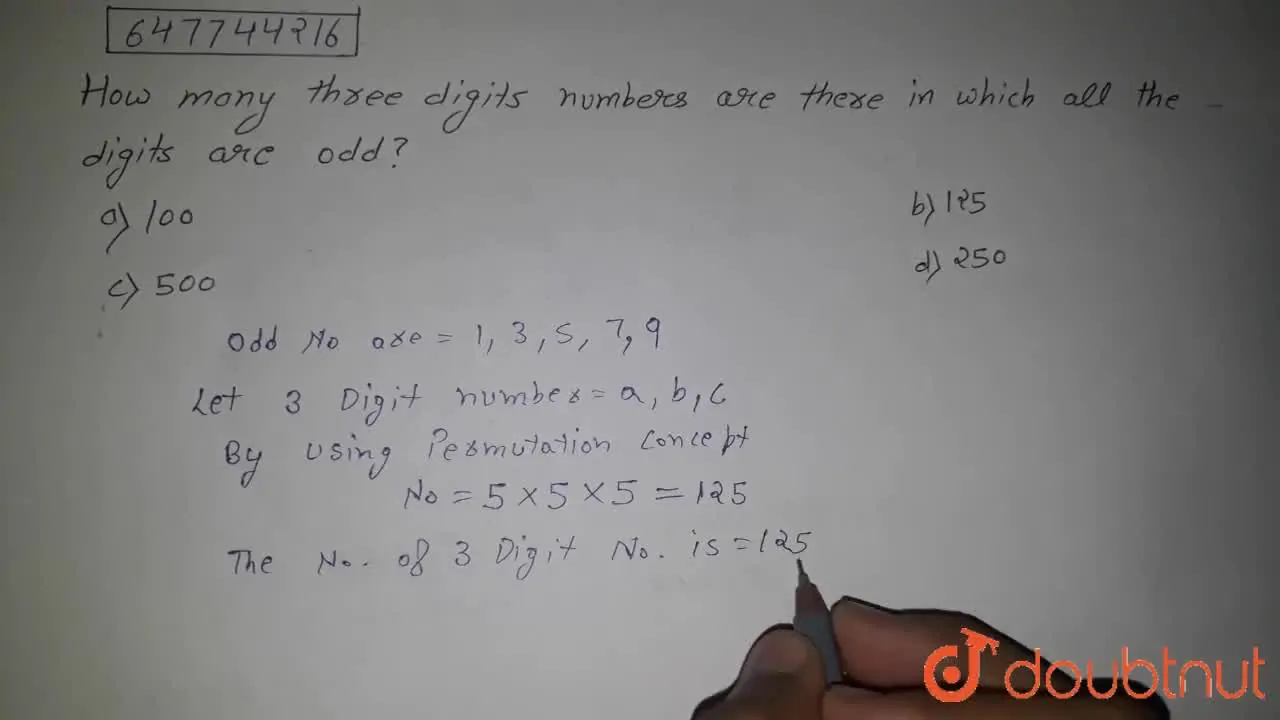 647744216
How many three digits numbers are there in which all the
digits are odd?
a) 100
b) 125
c) 500
d) 250
Odd No are = 1, 3, 5, 7, 9
Let 3 Digit number = a, b, c
By using Permutation concept
No = 5 × 5 × 5 = 125
The No. of 3 Digit No. is = 125
doubtnut